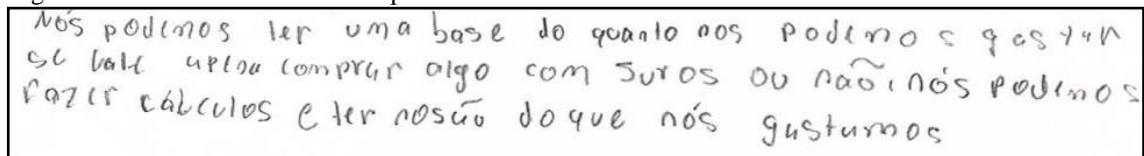 Nós podemos ter uma base do quanto nos podemos gastar
se vale apena comprar algo com Juros ou não, nós podemos
fazer cálculos e ter nosão do que nós gastamos